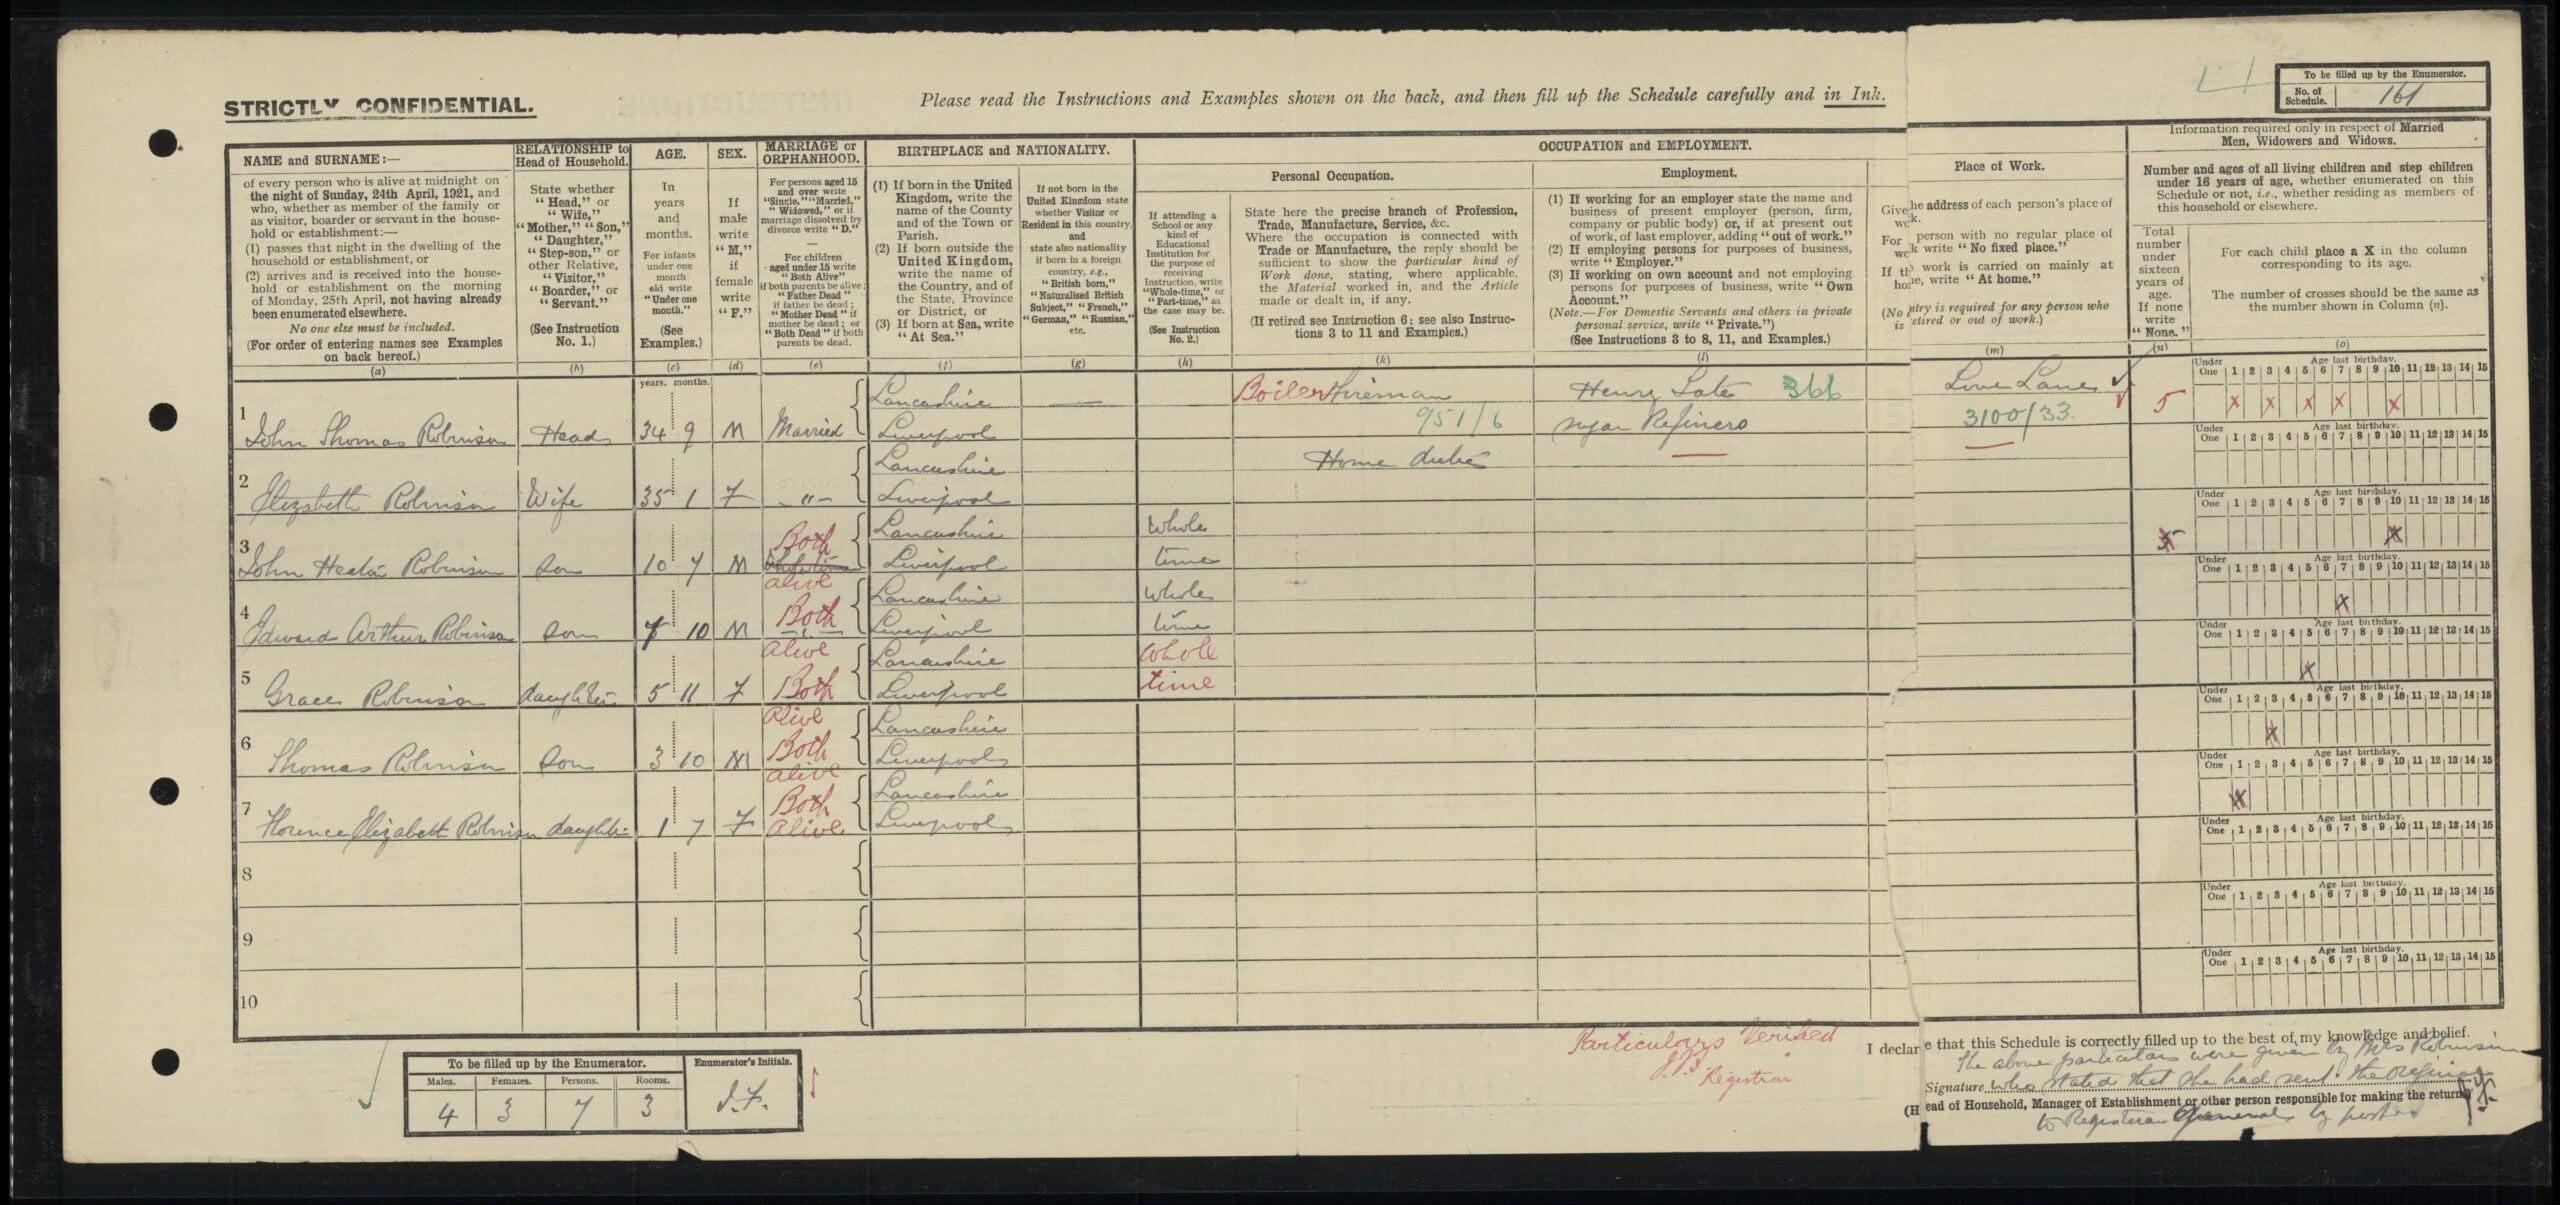 STRICTLY CONFIDENTIAL.
Please read the Instructions and Examples shown on the back, and then fill up the Schedule carefully and in Ink.
To be filled up by the Enumerator.
No. of Schedule. 161
NAME and SURNAME:—
of every person who is alive at midnight on
the night of Sunday, 24th April, 1921, and
who, whether as member of the family or
as visitor, boarder or servant in the house-
hold or establishment:—
(1) passes that night in the dwelling of the
household or establishment, or
(2) arrives and is received into the house-
hold or establishment on the morning
of Monday, 25th April, not having already
been enumerated elsewhere.
No one else must be included.
(For order of entering names see Examples
on back hereof.)
(a)
RELATIONSHIP to
Head of Household.
State whether
"Head," or
"Wife,"
"Mother," "Son,"
"Daughter,"
"Step-son," or
other Relative,
"Visitor,"
"Boarder," or
"Servant."
(See Instruction
No. 1.)
(b)
AGE.
In
years
and
months.
For infants
under one
month
old write
"Under one
month."
(See
Examples.)
(c)
SEX.
If
male
write
"M,"
if
female
write
"F."
(d)
MARRIAGE or
ORPHANHOOD.
For persons aged 15
and over write
"Single," "Married,"
"Widowed," or if
marriage dissolved by
divorce write "D."
—
For children
aged under 15 write
"Both Alive"
if both parents be alive;
"Father Dead"
if father be dead;
"Mother Dead" if
mother be dead; or
"Both Dead" if both
parents be dead.
(e)
BIRTHPLACE and NATIONALITY.
(1) If born in the United
Kingdom, write the
name of the County
and of the Town or
Parish.
(2) If born outside the
United Kingdom,
write the name of
the Country, and of
the State, Province
or District, or
(3) If born at Sea, write
"At Sea."
(f)
If not born in the
United Kingdom state
whether Visitor or
Resident in this country,
and
state also nationality
if born in a foreign
country, e.g.,
"British born,"
"Naturalised British
Subject," "French,"
"German," "Russian,"
etc.
(g)
OCCUPATION and EMPLOYMENT.
Personal Occupation.
If attending a
School or any
kind of
Educational
Institution for
the purpose of
receiving
Instruction, write
"Whole-time," or
"Part-time," as
the case may be.
(See Instruction
No. 2.)
(h)
State here the precise branch of Profession,
Trade, Manufacture, Service, &c.
Where the occupation is connected with
Trade or Manufacture, the reply should be
sufficient to show the particular kind of
Work done, stating, where applicable,
the Material worked in, and the Article
made or dealt in, if any.
(If retired see Instruction 6: see also Instruc-
tions 3 to 11 and Examples.)
(k)
Employment.
(1) If working for an employer state the name and
business of present employer (person, firm,
company or public body) or, if at present out
of work, of last employer, adding "out of work."
(2) If employing persons for purposes of business,
write "Employer."
(3) If working on own account and not employing
persons for purposes of business, write "Own
Account."
(Note.—For Domestic Servants and others in private
personal service, write "Private.")
(See Instructions 3 to 8, 11, and Examples.)
(l)
Place of Work.
Give the address of each person's place of
For person with no regular place of
write "No fixed place."
If the work is carried on mainly at
write "At home."
(No entry is required for any person who
is retired or out of work.)
(m)
Information required only in respect of Married
Men, Widowers and Widows.
Number and ages of all living children and step children
under 16 years of age, whether enumerated on this
Schedule or not, i.e., whether residing as members of
this household or elsewhere.
Total
number
under
sixteen
years of
age.
If none
write
"None."
(n)
For each child place a X in the column
corresponding to its age.
The number of crosses should be the same as
the number shown in Column (n).
(o)
years. months.
Under One Age last birthday. 1 2 3 4 5 6 7 8 9 10 11 12 13 14 15
1 John Thomas Robinson Head 34 9 M Married Lancashire Liverpool — Boiler Fireman 951/6 Henry Tate 366 Sugar Refiners Love Lane 3100/33. 5 X X X X X
Under One Age last birthday. 1 2 3 4 5 6 7 8 9 10 11 12 13 14 15
2 Elizabeth Robinson Wife 35 1 F -"- Lancashire Liverpool Home duties
Under One Age last birthday. 1 2 3 4 5 6 7 8 9 10 11 12 13 14 15
3 John Hector Robinson Son 10 7 M Both alive Lancashire Liverpool Whole time X
Under One Age last birthday. 1 2 3 4 5 6 7 8 9 10 11 12 13 14 15
4 Edward Arthur Robinson Son 7 10 M Both Alive Lancashire Liverpool Whole time X
Under One Age last birthday. 1 2 3 4 5 6 7 8 9 10 11 12 13 14 15
5 Grace Robinson daughter 5 11 F Both Alive Lancashire Liverpool Whole time X
Under One Age last birthday. 1 2 3 4 5 6 7 8 9 10 11 12 13 14 15
6 Thomas Robinson Son 3 10 M Both alive Lancashire Liverpool X
Under One Age last birthday. 1 2 3 4 5 6 7 8 9 10 11 12 13 14 15
7 Florence Elizabeth Robinson daughter 1 7 F Both Alive Lancashire Liverpool X
Under One Age last birthday. 1 2 3 4 5 6 7 8 9 10 11 12 13 14 15
8
Under One Age last birthday. 1 2 3 4 5 6 7 8 9 10 11 12 13 14 15
9
Under One Age last birthday. 1 2 3 4 5 6 7 8 9 10 11 12 13 14 15
10
Particulars Verified
Registrar
I declare that this Schedule is correctly filled up to the best of my knowledge and belief.
The above particulars were given by Mrs Robinson
Signature who stated that she had sent the original
(Head of Household, Manager of Establishment or other person responsible for making the return)
to Registrar General by post
To be filled up by the Enumerator.
Males. Females. Persons. Rooms.
4 3 7 3
Enumerator's Initials.
J.F.